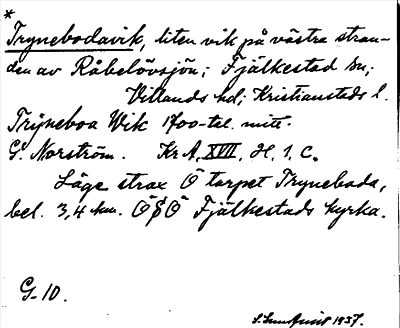 *
Trynebodavik, liten vik på västra stran-
den av Råbelövsjön; Fjälkestad sn;
Villands hd; Kristianstads l.
Trÿneboa Wik 1700-tal. mitt.
G. Norström. Kr A, XVII, H. 1, C.
Läge strax Ö torpet Tryneboda,
bel. 3,4 km. Ö§Ö Fjälkestads kyrka.
G-10.
S. Sundquist 1937.